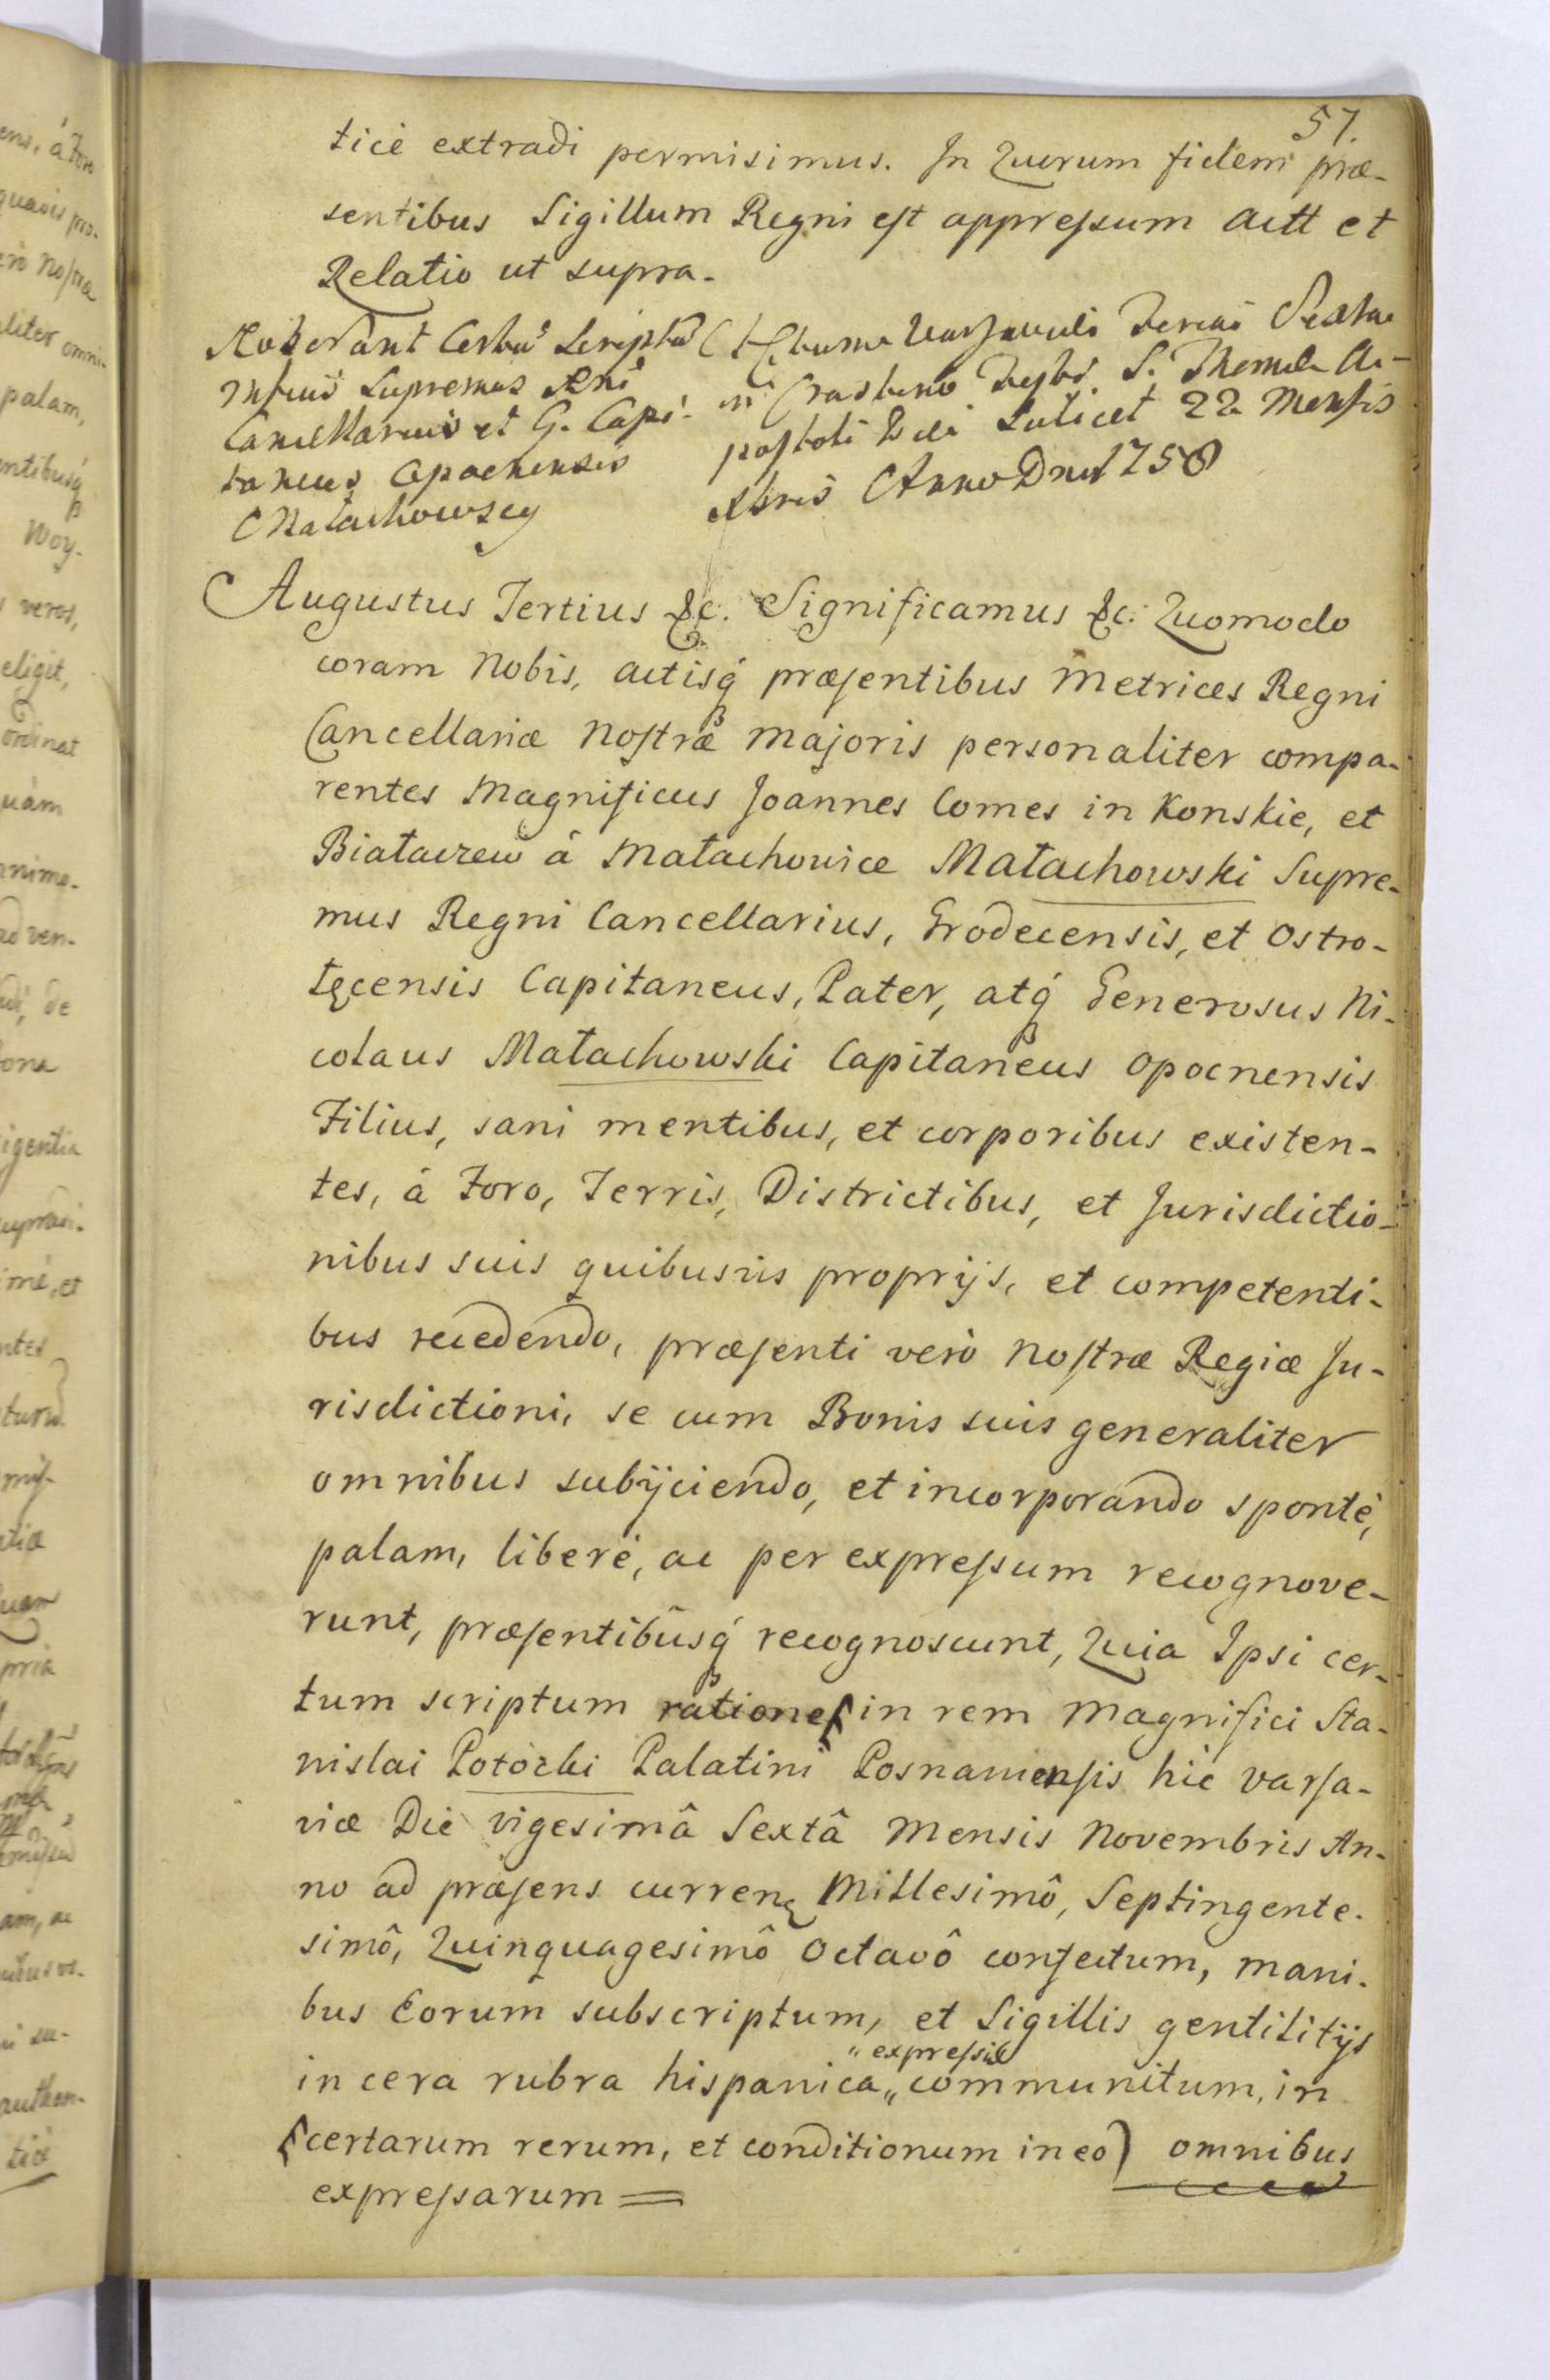 57.
ticè extradi permisimus. In Quorum fidem præ-
sentibus Sigillum Regni est appressum Actt et
Relatio ut supra.
Roborant Certũ Scriptũ
Mfcus Supremus Rni
Cancellarius et G. Capi-
taneus Opocnensis
Małachowscy
Actum Varsaviæ Feria Sexta
in Crastino Festi S. Thomæ A-
postoli Idei Scilicet 22 Mensis
Xbris Anno Dni 1758
Augustus Tertius &c. Significamus &c: Quomodo
coram Nobis, actisq́ præsentibus Metrices Regni
Cancellariæ Nostræ Majoris personaliter compa-
rentes Magnificus Joannes Comes in Konskie, et
Białaczew á Małachowice Małachowski Supre-
mus Regni Cancellarius, Grodecensis, et Ostro-
łęcensis Capitaneus, Pater, atq́ Generosus Ni-
colaus Małachowski Capitaneus Opocnensis
Filius, sani mentibus, et corporibus existen-
tes, á Foro, Terris, Districtibus, et Jurisdictio-
nibus suis quibusvis proprijs, et competenti-
bus recedendo, præsenti verò Nostræ Regiæ Ju-
risdictioni, se cum Bonis suis generaliter
omnibus subijciendo, et incorporando spontè,
palam, liberè, ac per expressum recognove-
runt, præsentibusq́ recognoscunt, Quia Ipsi cer-
tum scriptum ratione ( in rem Magnifici Sta-
nislai Potocki Palatini Posnaniensis hic Varsa-
viæ Die vigesimâ Sextâ Mensis Novembris An-
no ad præsens curren Millesimô, Septingente-
simô, Quinquagesimô Octavô confectum, mani-
bus Eorum subscriptum, et Sigillis gentilitijs
" expressis
in cera rubra hispanica " communitum, in
( certarum rerum, et conditionum in eo ) omnibus
expressarum =